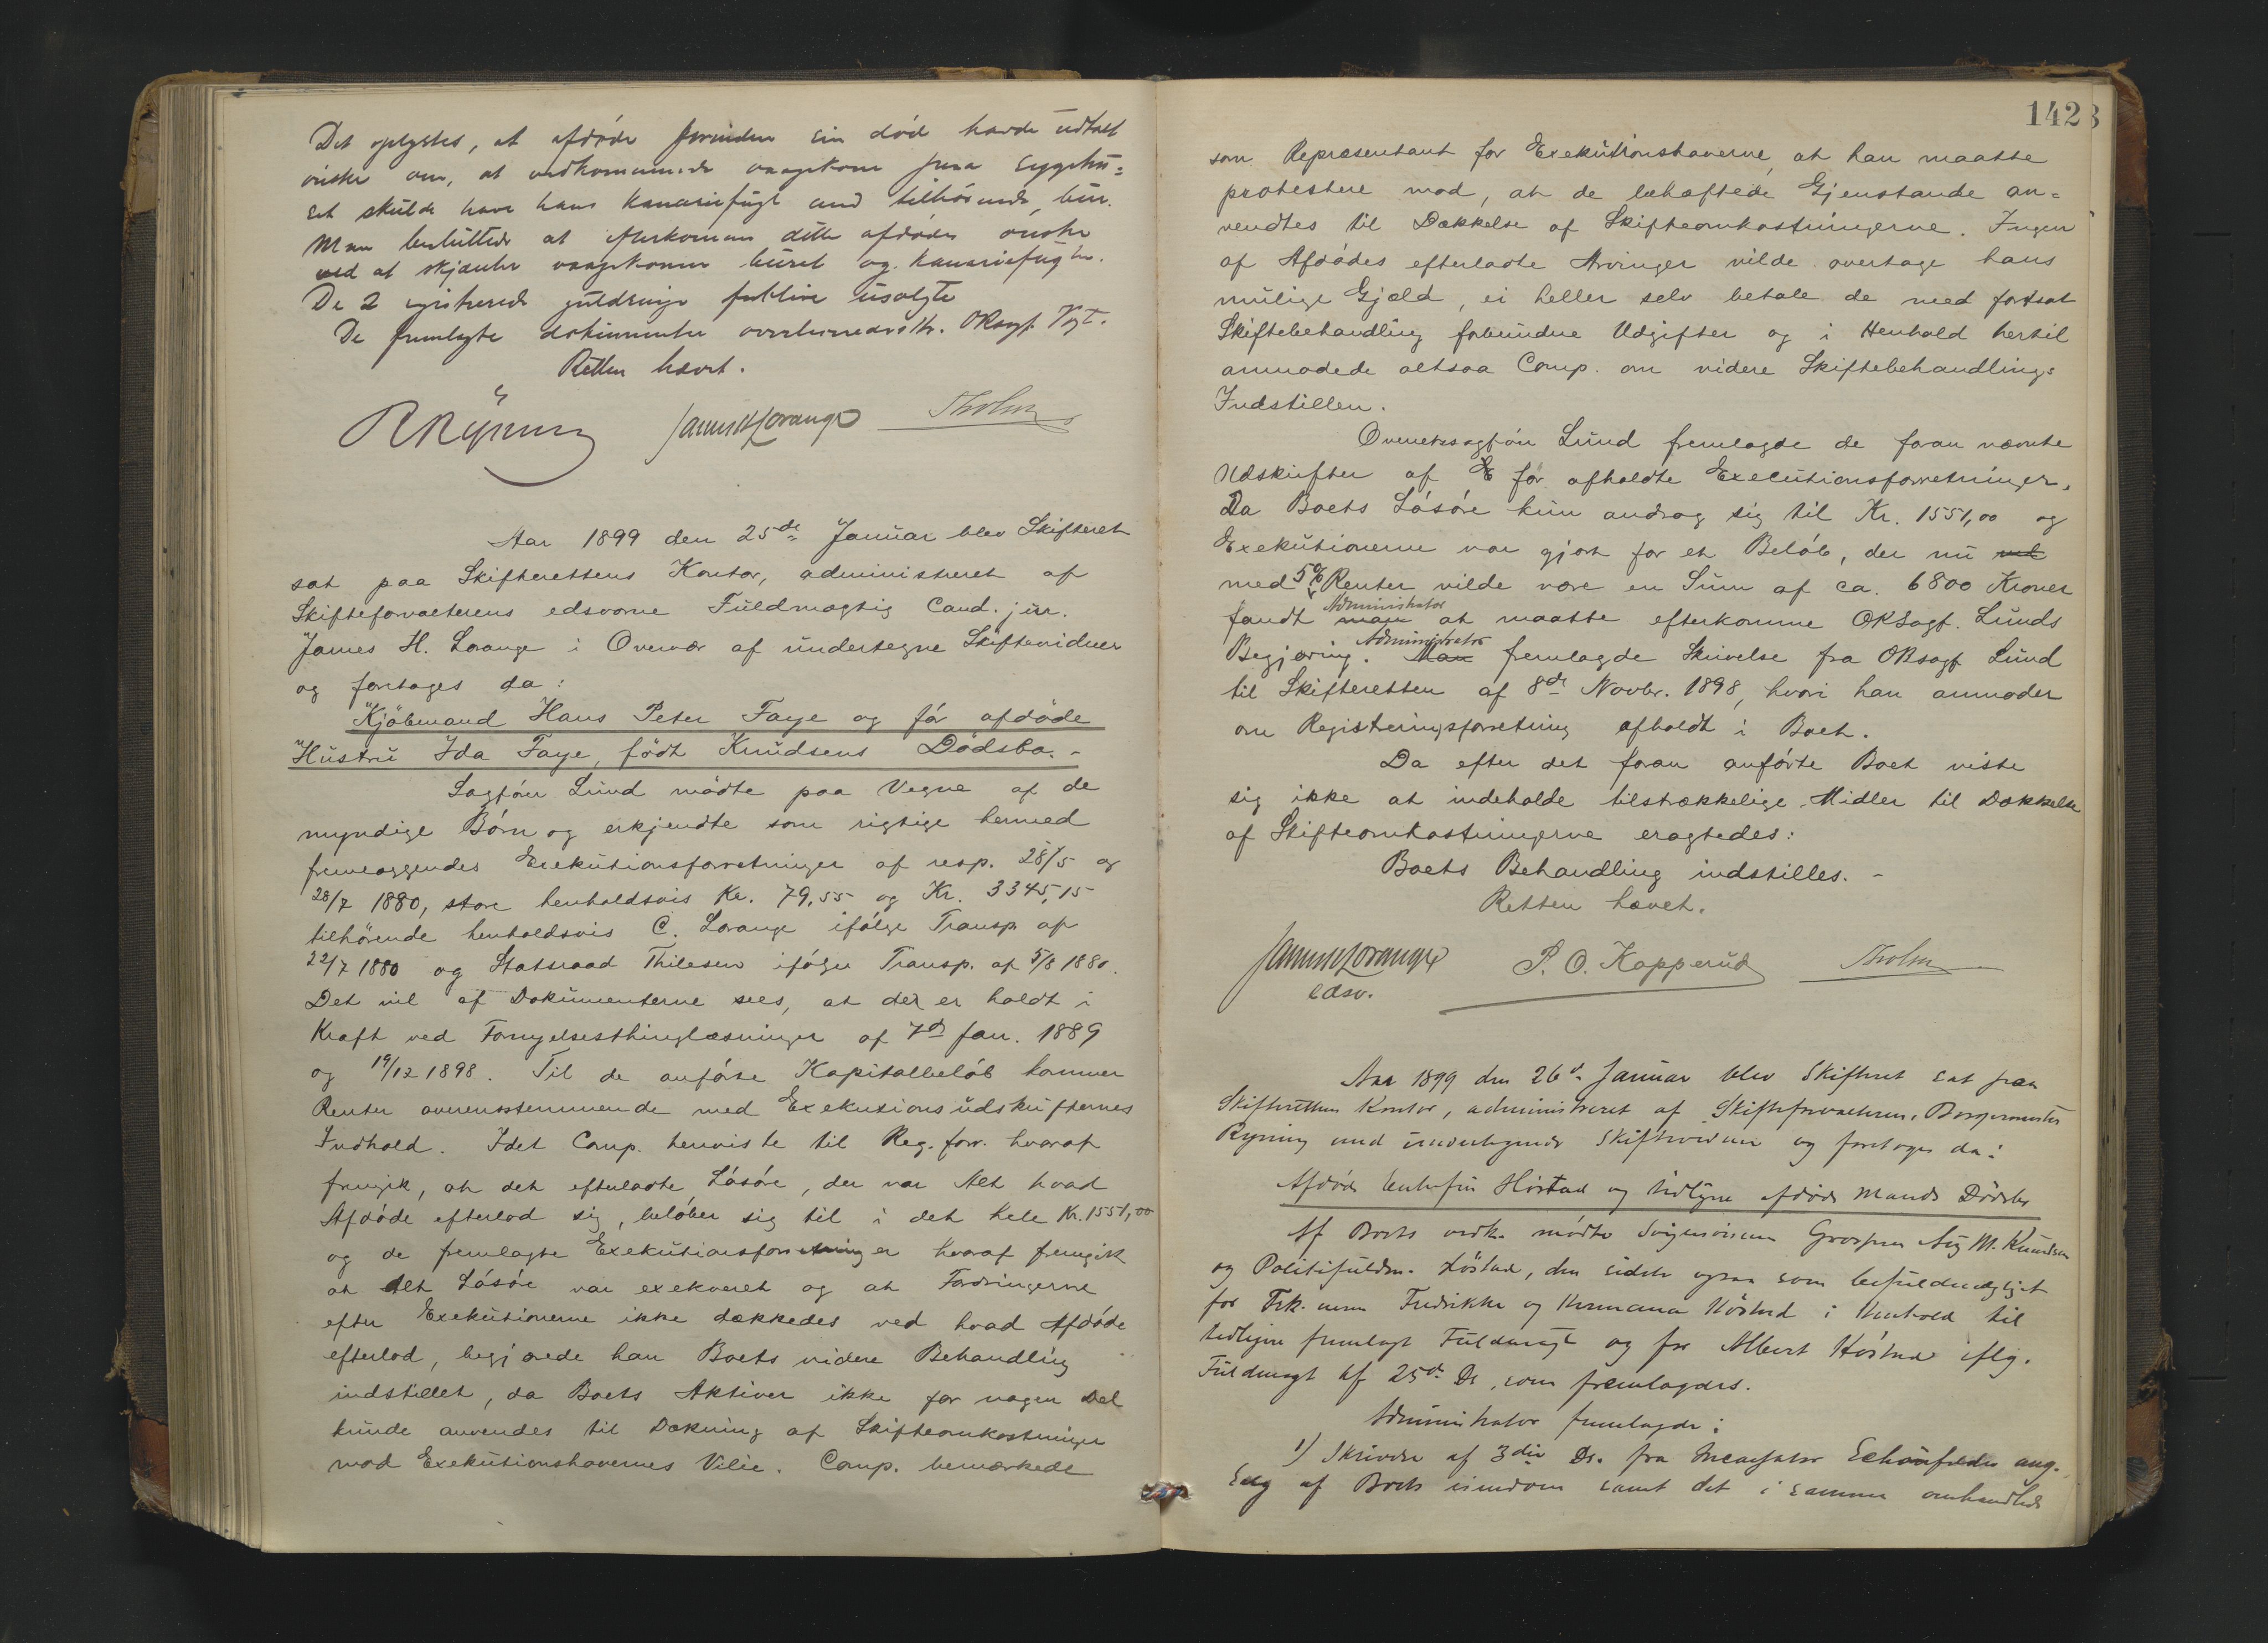 Det oplystes, at afdøde forinden sin død havde udtalt
ønske om, at vedkommende vaagekone paa sygehu=
set skulde have hans kanariefugl med tilhørende bur.
Man besluttede at efterkomme dette afdødes ønske
ved at skjænke vaagekonen buret og kanariefuglen.
De 2 registrerede guldringe forblive usolgte
De fremlagte dokumenter overleveredes Hr. ORsagf. Vogt.
Retten hævet.
RRyning James H Lorange Tholm
Aar 1899 den 25de Januar blev Skifteret
sat paa Skifterettens Kontor, administreret af
Skifteforvalterens edsvorne Fuldmægtig Cand. jur.
James H. Lorange i Overvær af undertegne Skiftevidner
og foretages da:
Kjøbmand Hans Peter Faye og før afdøde
Hustru Ida Faye, født Knudsens Dødsbo. -
Sagfører Lund mødte paa Vegne af de
myndige Børn og erkjendte som rigtige hermed
fremlæggendes Exekutionsforretninger af resp. 28/5 og
28/7 1880, store henholdsvis Kr. 79,55 og Kr. 3345,15
tilhørende henholdsvis C. Lorange ifølge Transp. af
22/7 1880 og Statsraad Thilesen ifølge Transp. af 5/8 1880.
Det vil af Dokumenterne sees, at der er holdt i
Kraft ved Fornyelsesthinglæsninger af 7de Jan. 1889
og 19/12 1898. Til de anførte Kapitalbeløb kommer
Renter overensstemmende med Exekutionsudskrifternes
Indhold. Idet Comp. henviste til Reg. forr. hvoraf
fremgik, at det efterladte Løsøre, der var Alt hvad
Afdøde efterlod sig, beløber sig til i det hele Kr. 1551,00
og de fremlagte Exekutionsforretninger hvoraf fremgik
at Alt Løsøre var exekveret og at Fordringerne
efter Exekutionerne ikke dækkedes ved hvad Afdøde
efterlod, begjærede han Boets videre Behandling
indstillet, da Boets Aktiver ikke for nogen Del
kunde anvendes til Dækning af Skifteomkostninger
mod Exekutionshavernes Vilie. Comp. bemærkede
1428
som Repræsentant for Exekutionshaverne, at han maatte
protestere mod, at de behæftede Gjenstande an=
vendtes til Dækkelse af Skifteomkostningerne. Ingen
af Afdødes efterladte Arvinger vilde overtage hans
mulige Gjæld, ei heller selv betale de med fortsat
Skiftebehandling forbundne Udgifter og i Henhold hertil
anmodede altsaa Comp. om videre Skiftebehandlings
Indstillen.
Overretssagfører Lund fremlagde de foran nævnte
Udskrifter af E før afholdte Executionsforretninger.
Da Boets Løsøre kun androg sig til Kr. 1551,00 og
Exekutionerne var gjort for et Beløb, der nu ved
med 5% Renter vilde være en Sum af ca. 6800 Kroner
fandt man Administrator at maatte efterkomme ORSagf. Lunds
Begjæring. Man Administrator fremlagde Skrivelse fra ORsagf Lund
til Skifteretten af 8de Novbr. 1898, hvori han anmoder
om Registreringsforretning afholdt i Boet.
Da efter det foran anførte Boet viste
sig ikke at indeholde tilstrækkelige Midler til Dækkelse
af Skifteomkostningerne eragtedes:
Boets Behandling indstilles. -
Retten hævet.
James H Lorange P. O. Kopperud Tholm
edsv.
Aar 1899 den 26de Januar blev Skifteret sat paa
Skifterettens Kontor, administreret af Skifteforvalteren, Borgermester
Ryning med undertegnede Skiftevidner og foretages da:
Afdøde Enkefru Høstad og tidligere afdøde Mands Dødsbo
Af Boets vedk. mødte Svigersønnen Grosserer Aug M. Knudsen
og Politifuldm. Høstad, den sidste ogsaa som befuldmægtiget
for Frk.nerne Fredrikke og Hermana Høstad i Henhold til
tidligere fremlagt Fuldmagt og for Albert Høstad iflg.
Fuldmagt af 25de Ds, som fremlagdes.
Administrator fremlagde:
1) Skrivelse af 3die Ds. fra Incassator Schönfelder ang.
Salg af Boets eiendom samt det i samme omhandlede